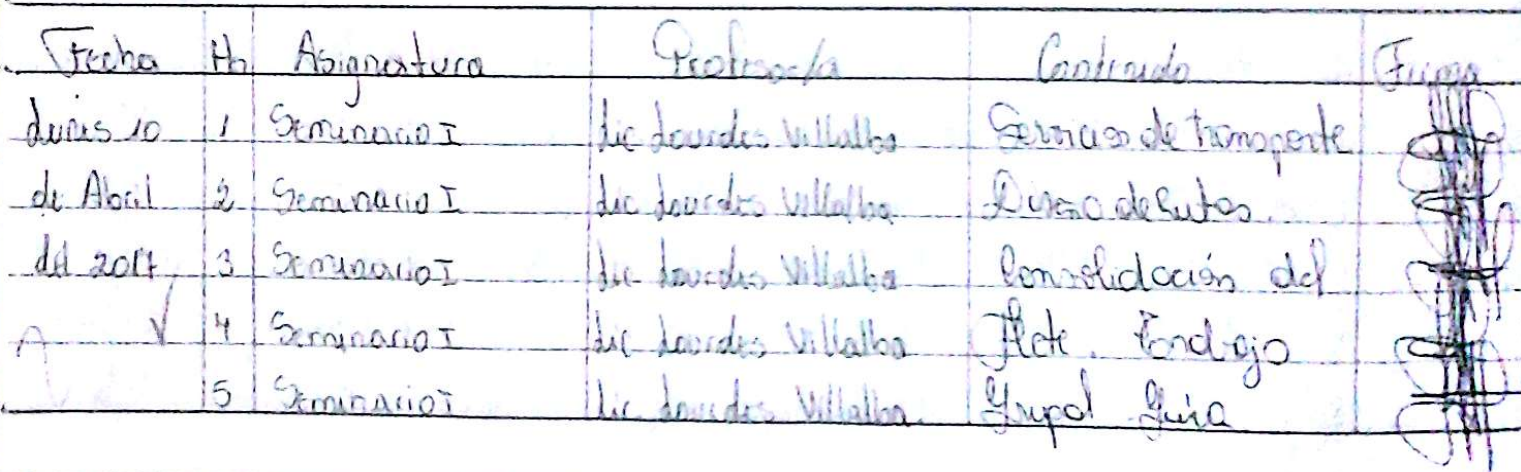 Fecha Hs Asignatura Profesor/a Contenido Firma
Lunes 10 1 Seminario I Lic Lourdes Villalba Servicios de transporte
de Abril 2 Seminario I Lic Lourdes Villalba Diseño de Rutas.
del 2017 3 Seminario I Lic Lourdes Villalba Consolidación del
4 Seminario I Lic Lourdes Villalba Flete.
5 Seminario I Lic Lourdes Villalba. Grupal Guia